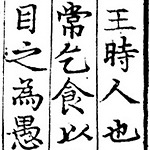 王時人也
常乞食以
目之為愚